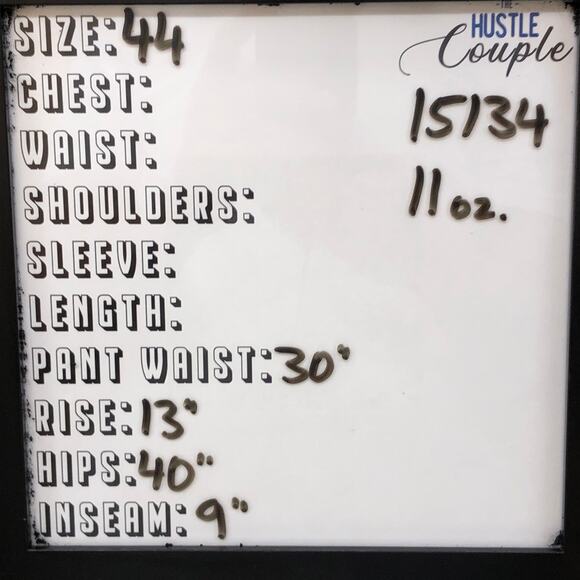 -THE-
HUSTLE
Couple
SIZE: 44
CHEST:
15134
WAIST:
11 oz.
SHOULDERS:
SLEEVE:
LENGTH:
PANT WAIST: 30"
RISE: 13"
HIPS: 40"
INSEAM: 9"